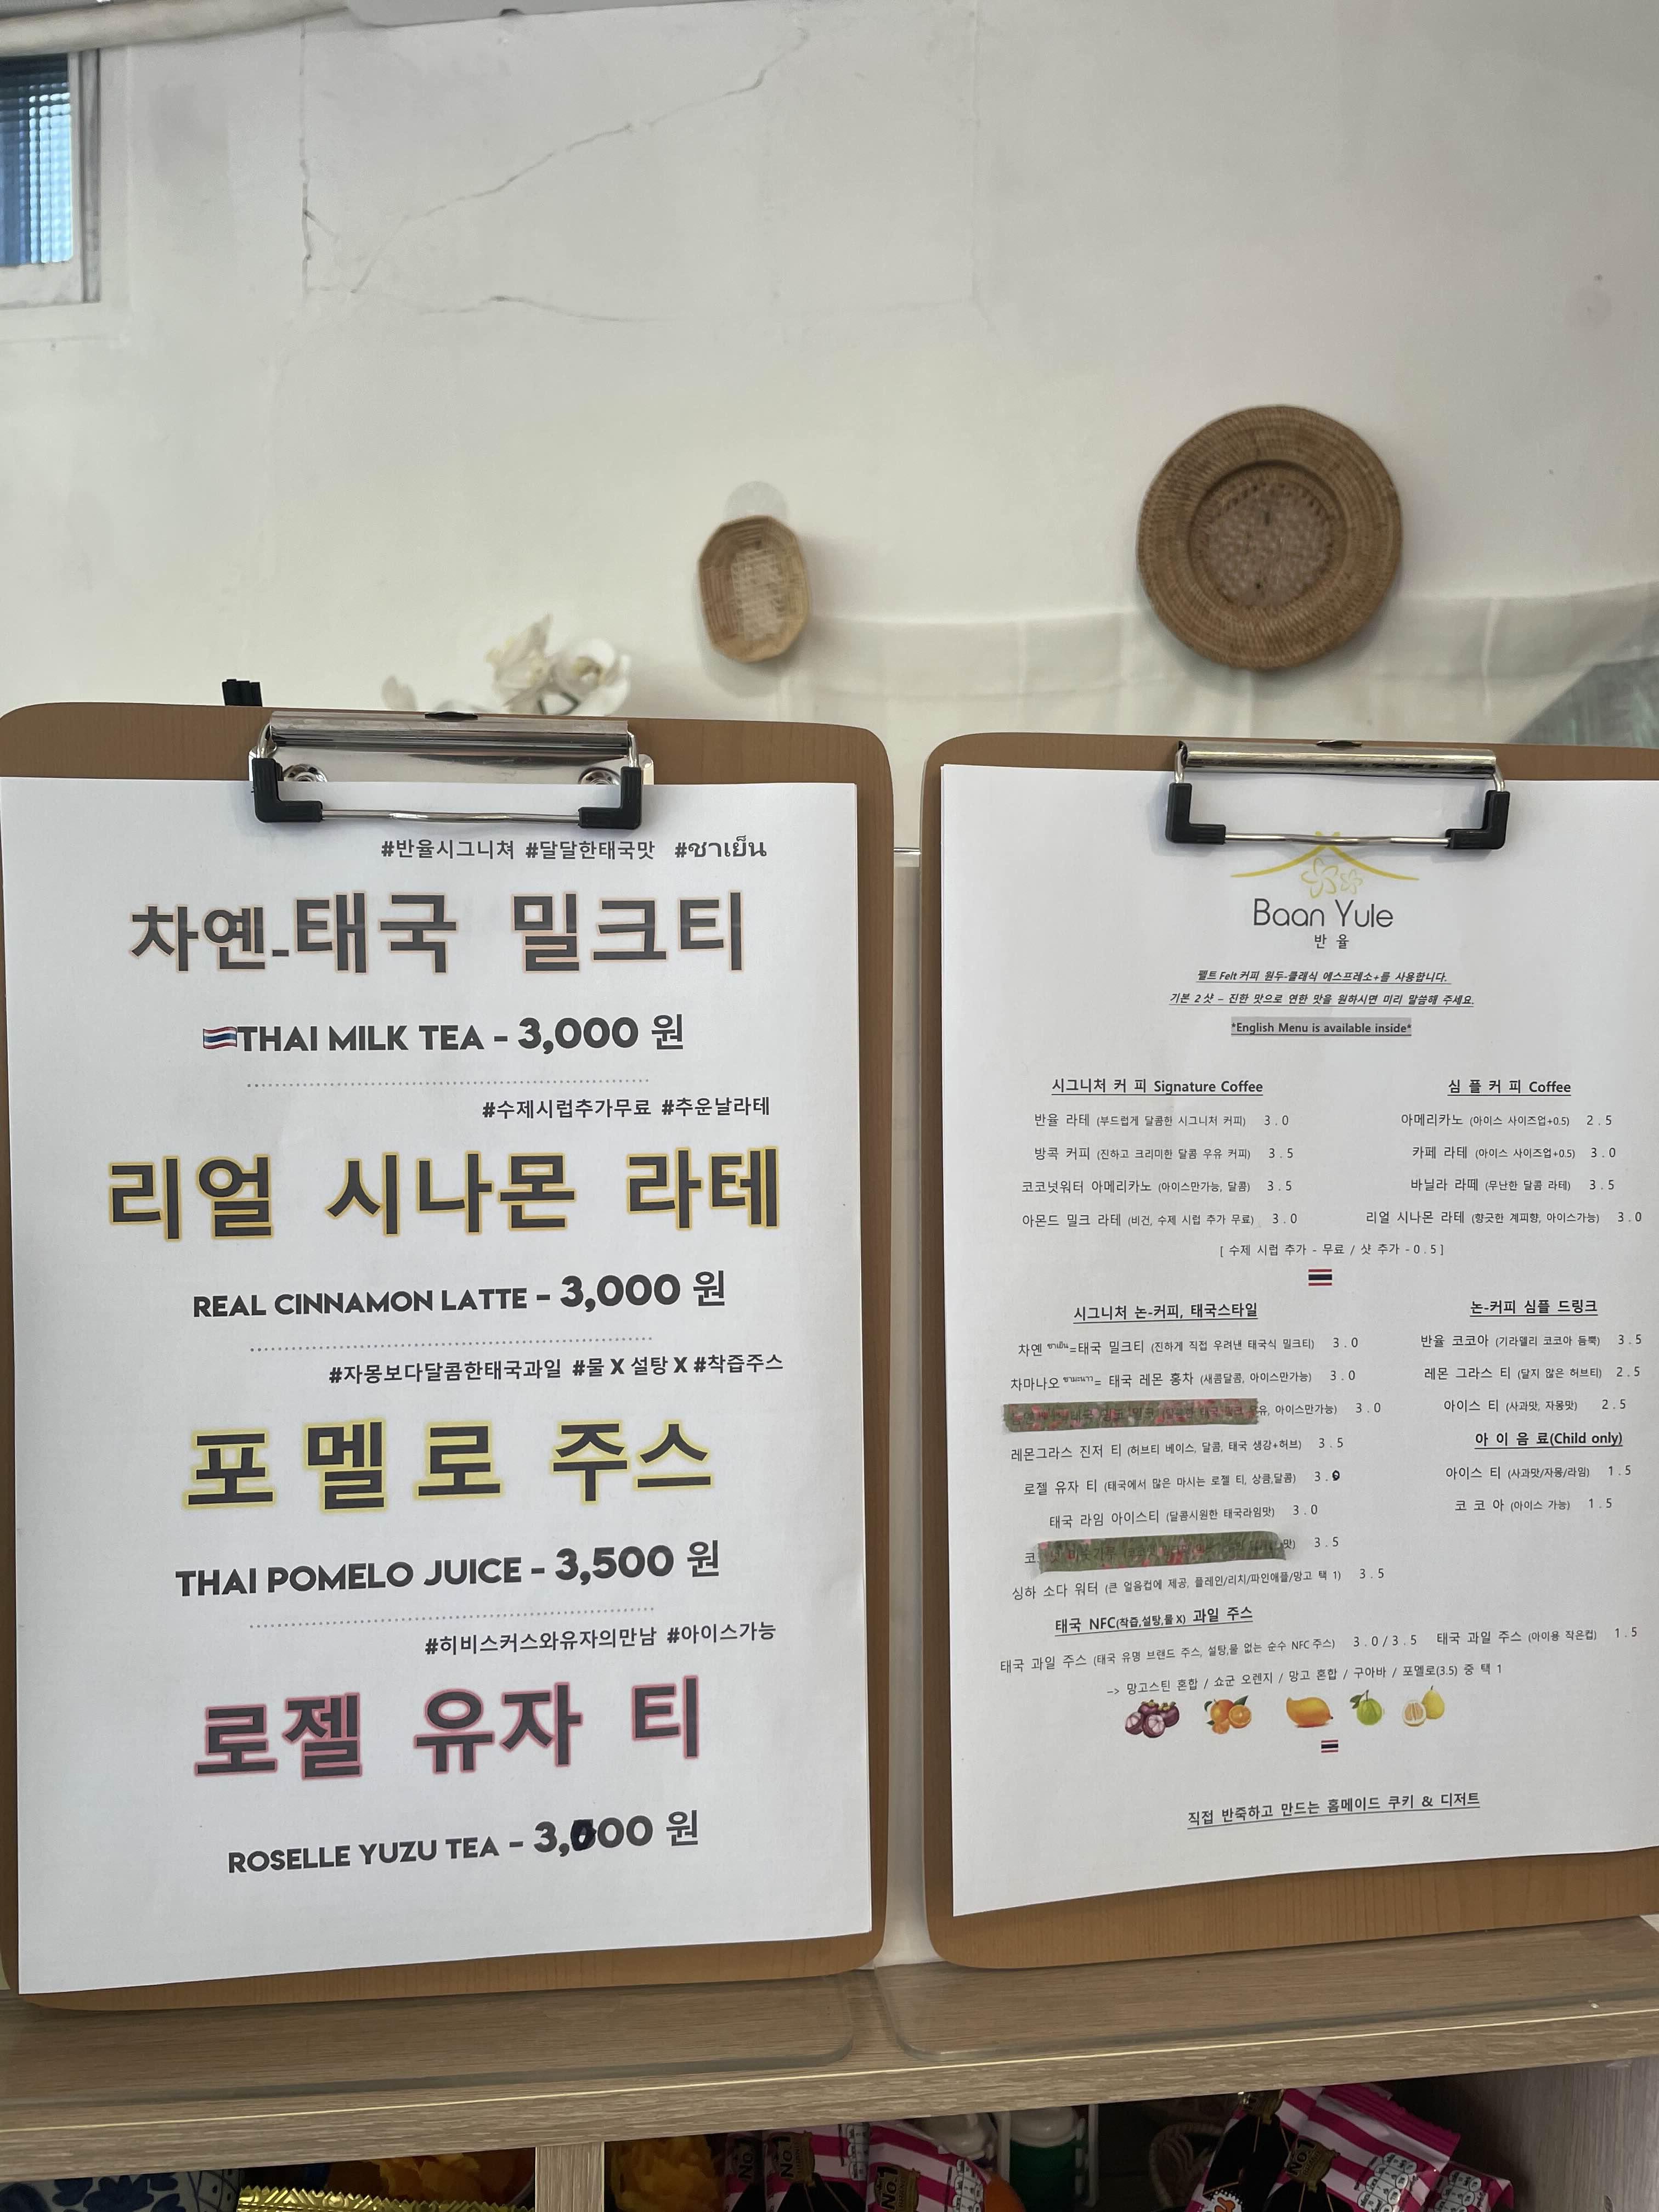 #반율시그니쳐 #달달한태국맛 #ชาเย็น
차옌-태국 밀크티
THAI MILK TEA - 3,000 원
#수제시럽추가무료 #추운날라테
리얼 시나몬 라테
REAL CINNAMON LATTE - 3,000 원
#자몽보다달콤한태국과일 #물 X 설탕 X #착즙주스
포멜로 주스
THAI POMELO JUICE - 3,500 원
#히비스커스와유자의만남 #아이스가능
로젤 유자 티
ROSELLE YUZU TEA - 3,000 원
Baan Yule
반 율
펠트 Felt 커피 원두-클래식 에스프레소+를 사용합니다.
기본 2 샷 – 진한 맛으로 연한 맛을 원하시면 미리 말씀해 주세요.
*English Menu is available inside*
시그니처 커 피 Signature Coffee
반율 라테 (부드럽게 달콤한 시그니처 커피) 3.0
방콕 커피 (진하고 크리미한 달콤 우유 커피) 3.5
코코넛워터 아메리카노 (아이스만가능, 달콤) 3.5
아몬드 밀크 라테 (비건, 수제 시럽 추가 무료) 3.0
심 플 커 피 Coffee
아메리카노 (아이스 사이즈업+0.5) 2.5
카페 라테 (아이스 사이즈업+0.5) 3.0
바닐라 라떼 (무난한 달콤 라테) 3.5
리얼 시나몬 라테 (향긋한 계피향, 아이스가능) 3.0
[ 수제 시럽 추가 - 무료 / 샷 추가 - 0.5 ]
시그니처 논-커피, 태국스타일
차옌 ชาเย็น=태국 밀크티 (진하게 직접 우려낸 태국식 밀크티) 3.0
차마나오 ชามะนาว= 태국 레몬 홍차 (새콤달콤, 아이스만가능) 3.0
아이스만가능) 3.0
레몬그라스 진저 티 (허브티 베이스, 달콤, 태국 생강+허브) 3.5
로젤 유자 티 (태국에서 많은 마시는 로젤 티, 상큼,달콤) 3.0
태국 라임 아이스티 (달콤시원한 태국라임맛) 3.0
코 맛) 3.5
싱하 소다 워터 (큰 얼음컵에 제공, 플레인/리치/파인애플/망고 택 1) 3.5
논-커피 심플 드링크
반율 코코아 (기라델리 코코아 듬뿍) 3.5
레몬 그라스 티 (달지 않은 허브티) 2.5
아이스 티 (사과맛, 자몽맛) 2.5
아 이 음 료(Child only)
아이스 티 (사과맛/자몽/라임) 1.5
코 코 아 (아이스 가능) 1.5
태국 NFC(착즙,설탕,물 X) 과일 주스
태국 과일 주스 (태국 유명 브랜드 주스, 설탕,물 없는 순수 NFC 주스) 3.0 / 3.5 태국 과일 주스 (아이용 작은컵) 1.5
-> 망고스틴 혼합 / 쇼군 오렌지 / 망고 혼합 / 구아바 / 포멜로(3.5) 중 택 1
직접 반죽하고 만드는 홈메이드 쿠키 & 디저트
No.1
No.1
No.1
No.1